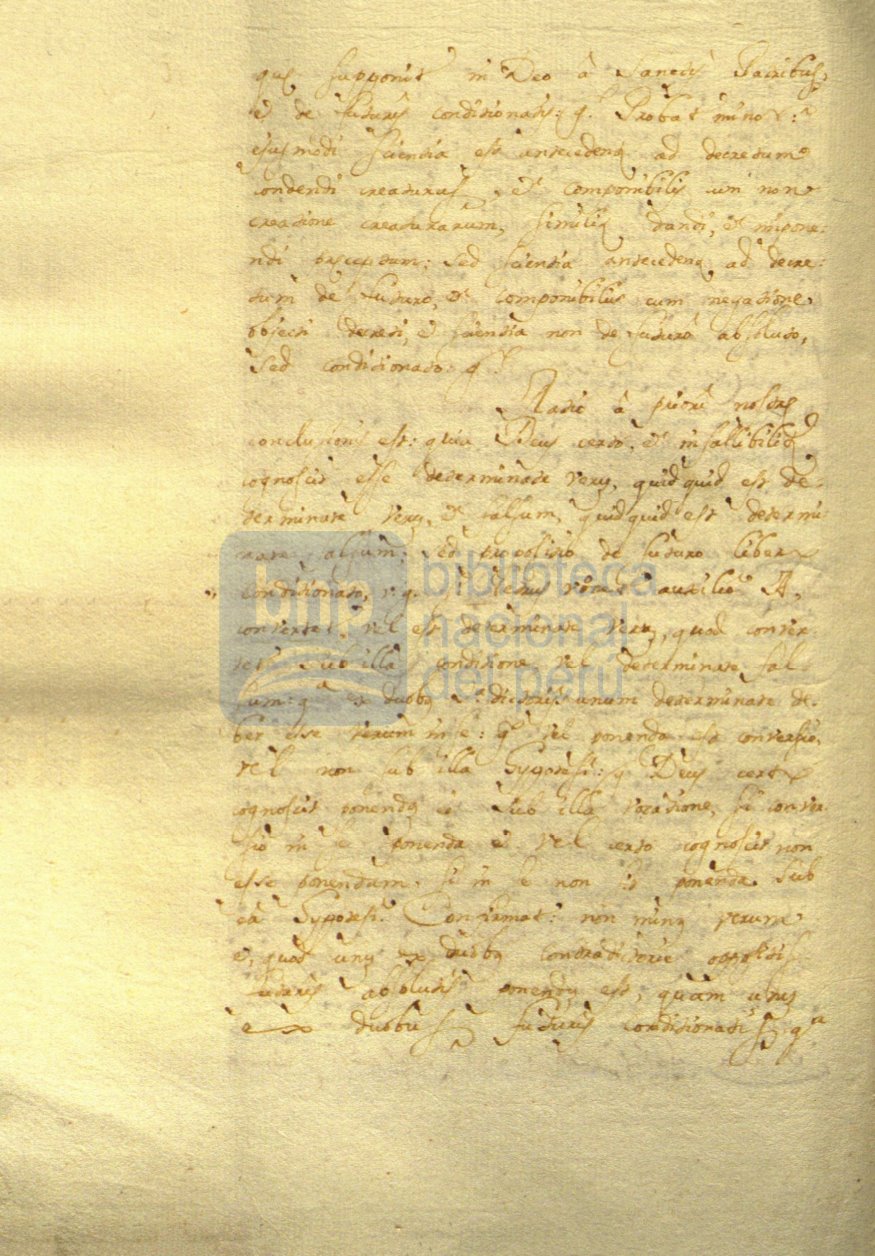 que supponit in Deo â Sanctis Patribus,
ê de futuris conditionatis: g. Probat mino r:
ejusmodi scientia est antecedens ad decretum
condendi creaturas, et componibilis cum non
creatione creaturarum, similiq dandi, et impone:
ndi præceptum: sed scientia antecedens ad decre:
tum de futuro, et componibilis cum negatione
objecti decreti, ê scientia non de futuro absoluto,
sed conditionato. g
Ratio â priori nostræ
conclusionis est: quia Deus certo, et infallibiliter
cognoscit esse determinate verum, quidquid est de-
terminate verum, et falsum, quidquid est determi
nate falsum; sed propositio de futuro libero
conditionato, v. g. Petrus vocatus auxilio A,
convertetur, vel est determinate vera, quod conver
tetur sub illa conditione, vel determinate fal
sum: qª ex duobq unum determinate de-
bet esse verum in se: vel ponenda est conversio,
vel non sub illa hypotesi: g Deus certo
cognoscit ponendam sub illa vocatione, si conver
sio in se ponenda ê vel certo cognoscit non
esse ponendam, si in se non ponenda sub
eâ hypotesi. Confirmat: non minq verum
ê, quod unum ex duobq contradictorie oppositis
futuris absolutis ponendum est, quam unum
ex duobus futuris conditionatis qª
bnp biblioteca
nacional
del perú